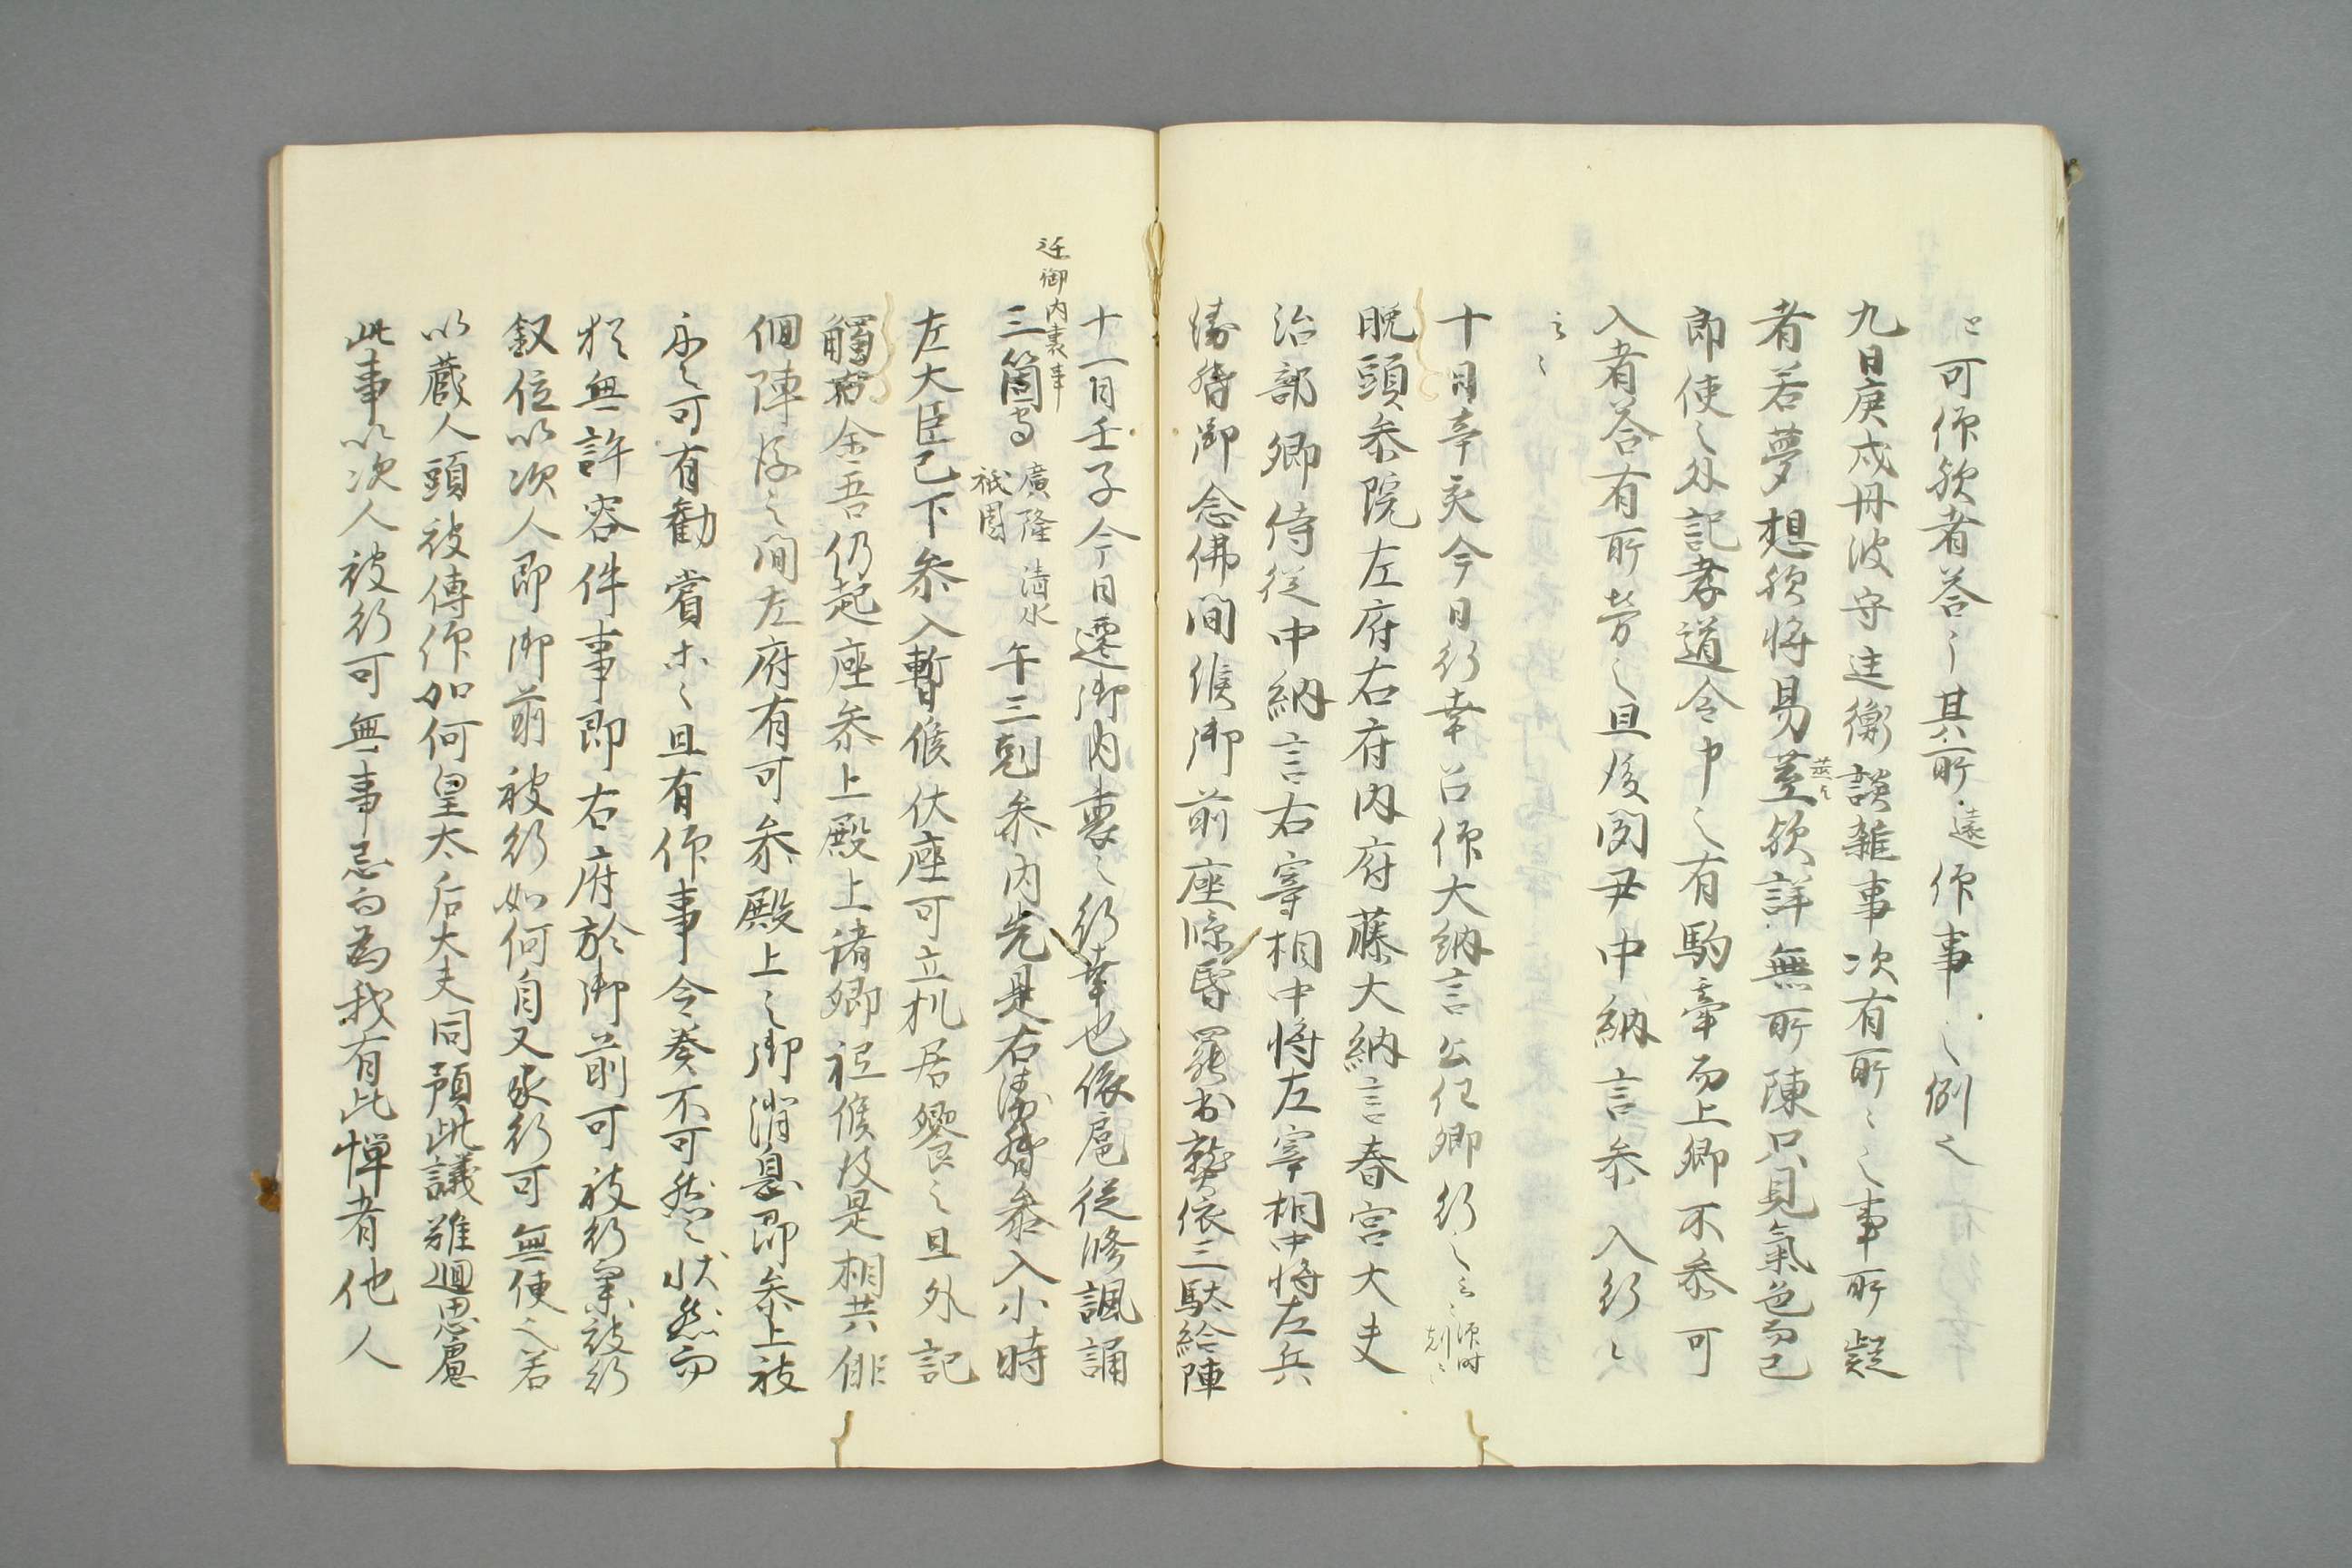 可仰欤者答之其所遠仰事之例之
九日庚戌丹波守匡衡談雑事次有所々之事所疑
者若夢想欤将易筮欤詳無所陳只見氣色而已
即使之外記孝道令申之有駒牽而上卿不参可
入者答有所労之且後聞尹中納言参入行之
云々
十日辛亥今日行幸召仰大納言公任卿行之云々
晩頭参院左府右府内府藤大納言春宮大夫
治部卿侍従中納言右宰相中将左宰相中将左兵
衛督御念佛間候御前座臨昏罷出熟依三駄給陣
十一日壬子今日遷御内裏之行幸也依扈従修諷誦
迁御内裏事
三箇寺 廣隆 清水 祇園 午三剋参内先是右衛督参入小時
左大臣已下参入暫候伏座可立机居饗之且外記
觸右金吾仍起座参上殿上諸卿祗候及是相共俳
佪陣後之間左府有可参殿上之御消息即参上被
示之可有勧賞
且有仰事令奏不可然之状然而
猶無許容件事即右府於御前可被行
被行
叙位以次人即御前被行如何自又
行可無便之若
以蔵人頭被傳仰如何皇太后大夫同預此議雖廻思慮
此事以次人被行可無事忌
為我有此憚者他人